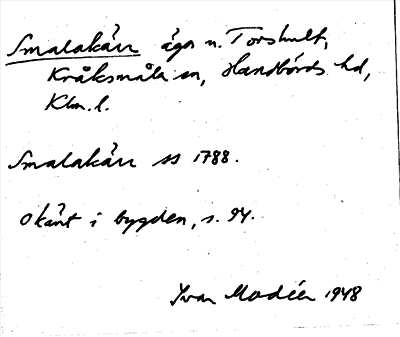 Smalakärr ägor n. Torshult,
Kråksmåla sn, Handbörds hd,
Klm. l.
Smalakärr ss 1788.
Okänt i bygden, s. 94.
Ivar Modéer 1948